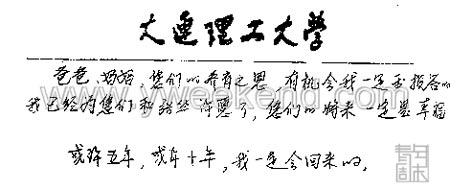 大连理工大学
爸爸、妈妈，您们的养育之恩，有机会我一定去报答的
我已经为您们和结草许愿了，您们的将来一定是幸福
或许五年，或许十年，我一定会回来的。
www.yweekend.com